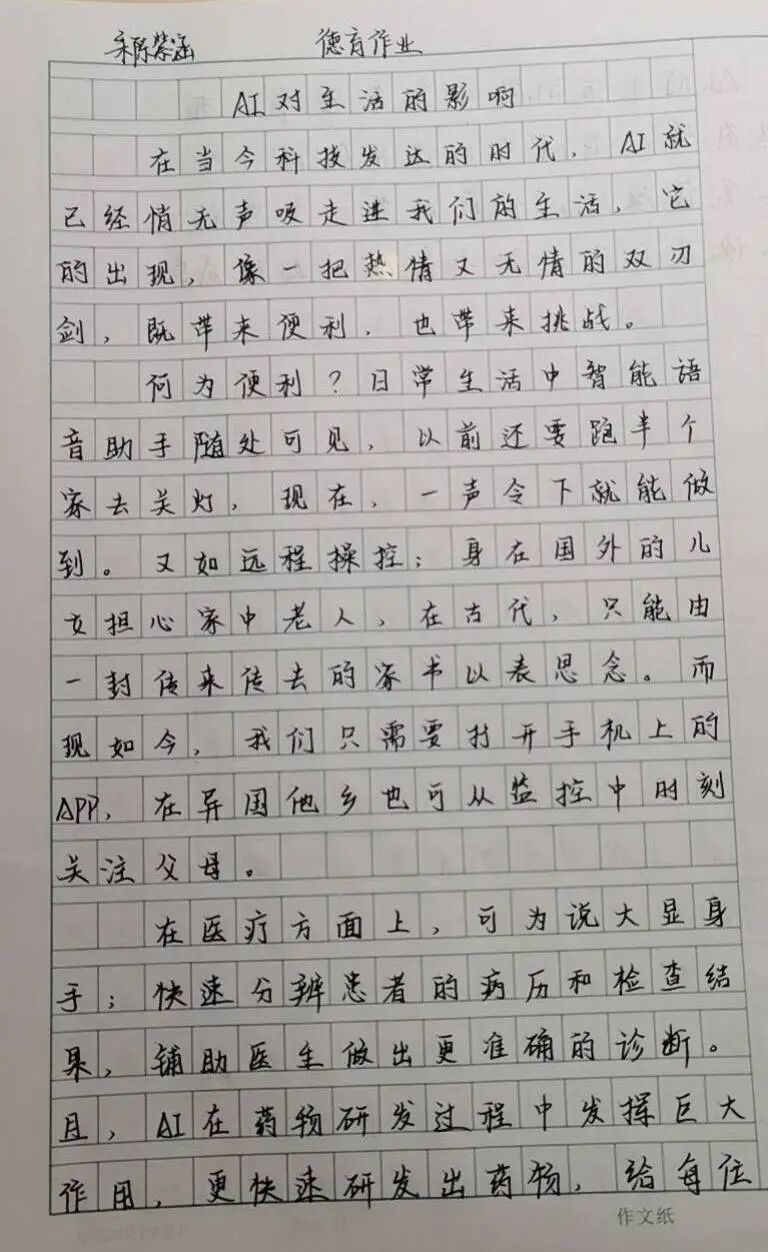 德育作业
AI对生活的影响
在当今科技发达的时代，AI就
已经悄无声吸走进我们的生活，它
的出现，像一把热情又无情的双刃
剑，既带来便利，也带来挑战。
何为便利？日常生活中智能语
音助手随处可见，以前还要跑半个
家去关灯，现在，一声令下就能做
到。又如远程操控；身在国外的儿
女担心家中老人，在古代，只能由
一封传来传去的家书以表思念。而
现如今，我们只需要打开手机上的
APP，在异国他乡也可从监控中时刻
关注父母。
在医疗方面上，可为说大显身
手；快速分辨患者的病历和检查结
果，辅助医生做出更准确的诊断。
且，AI在药物研发过程中发挥巨大
作用，更快速研发出药物，给每位
作文纸